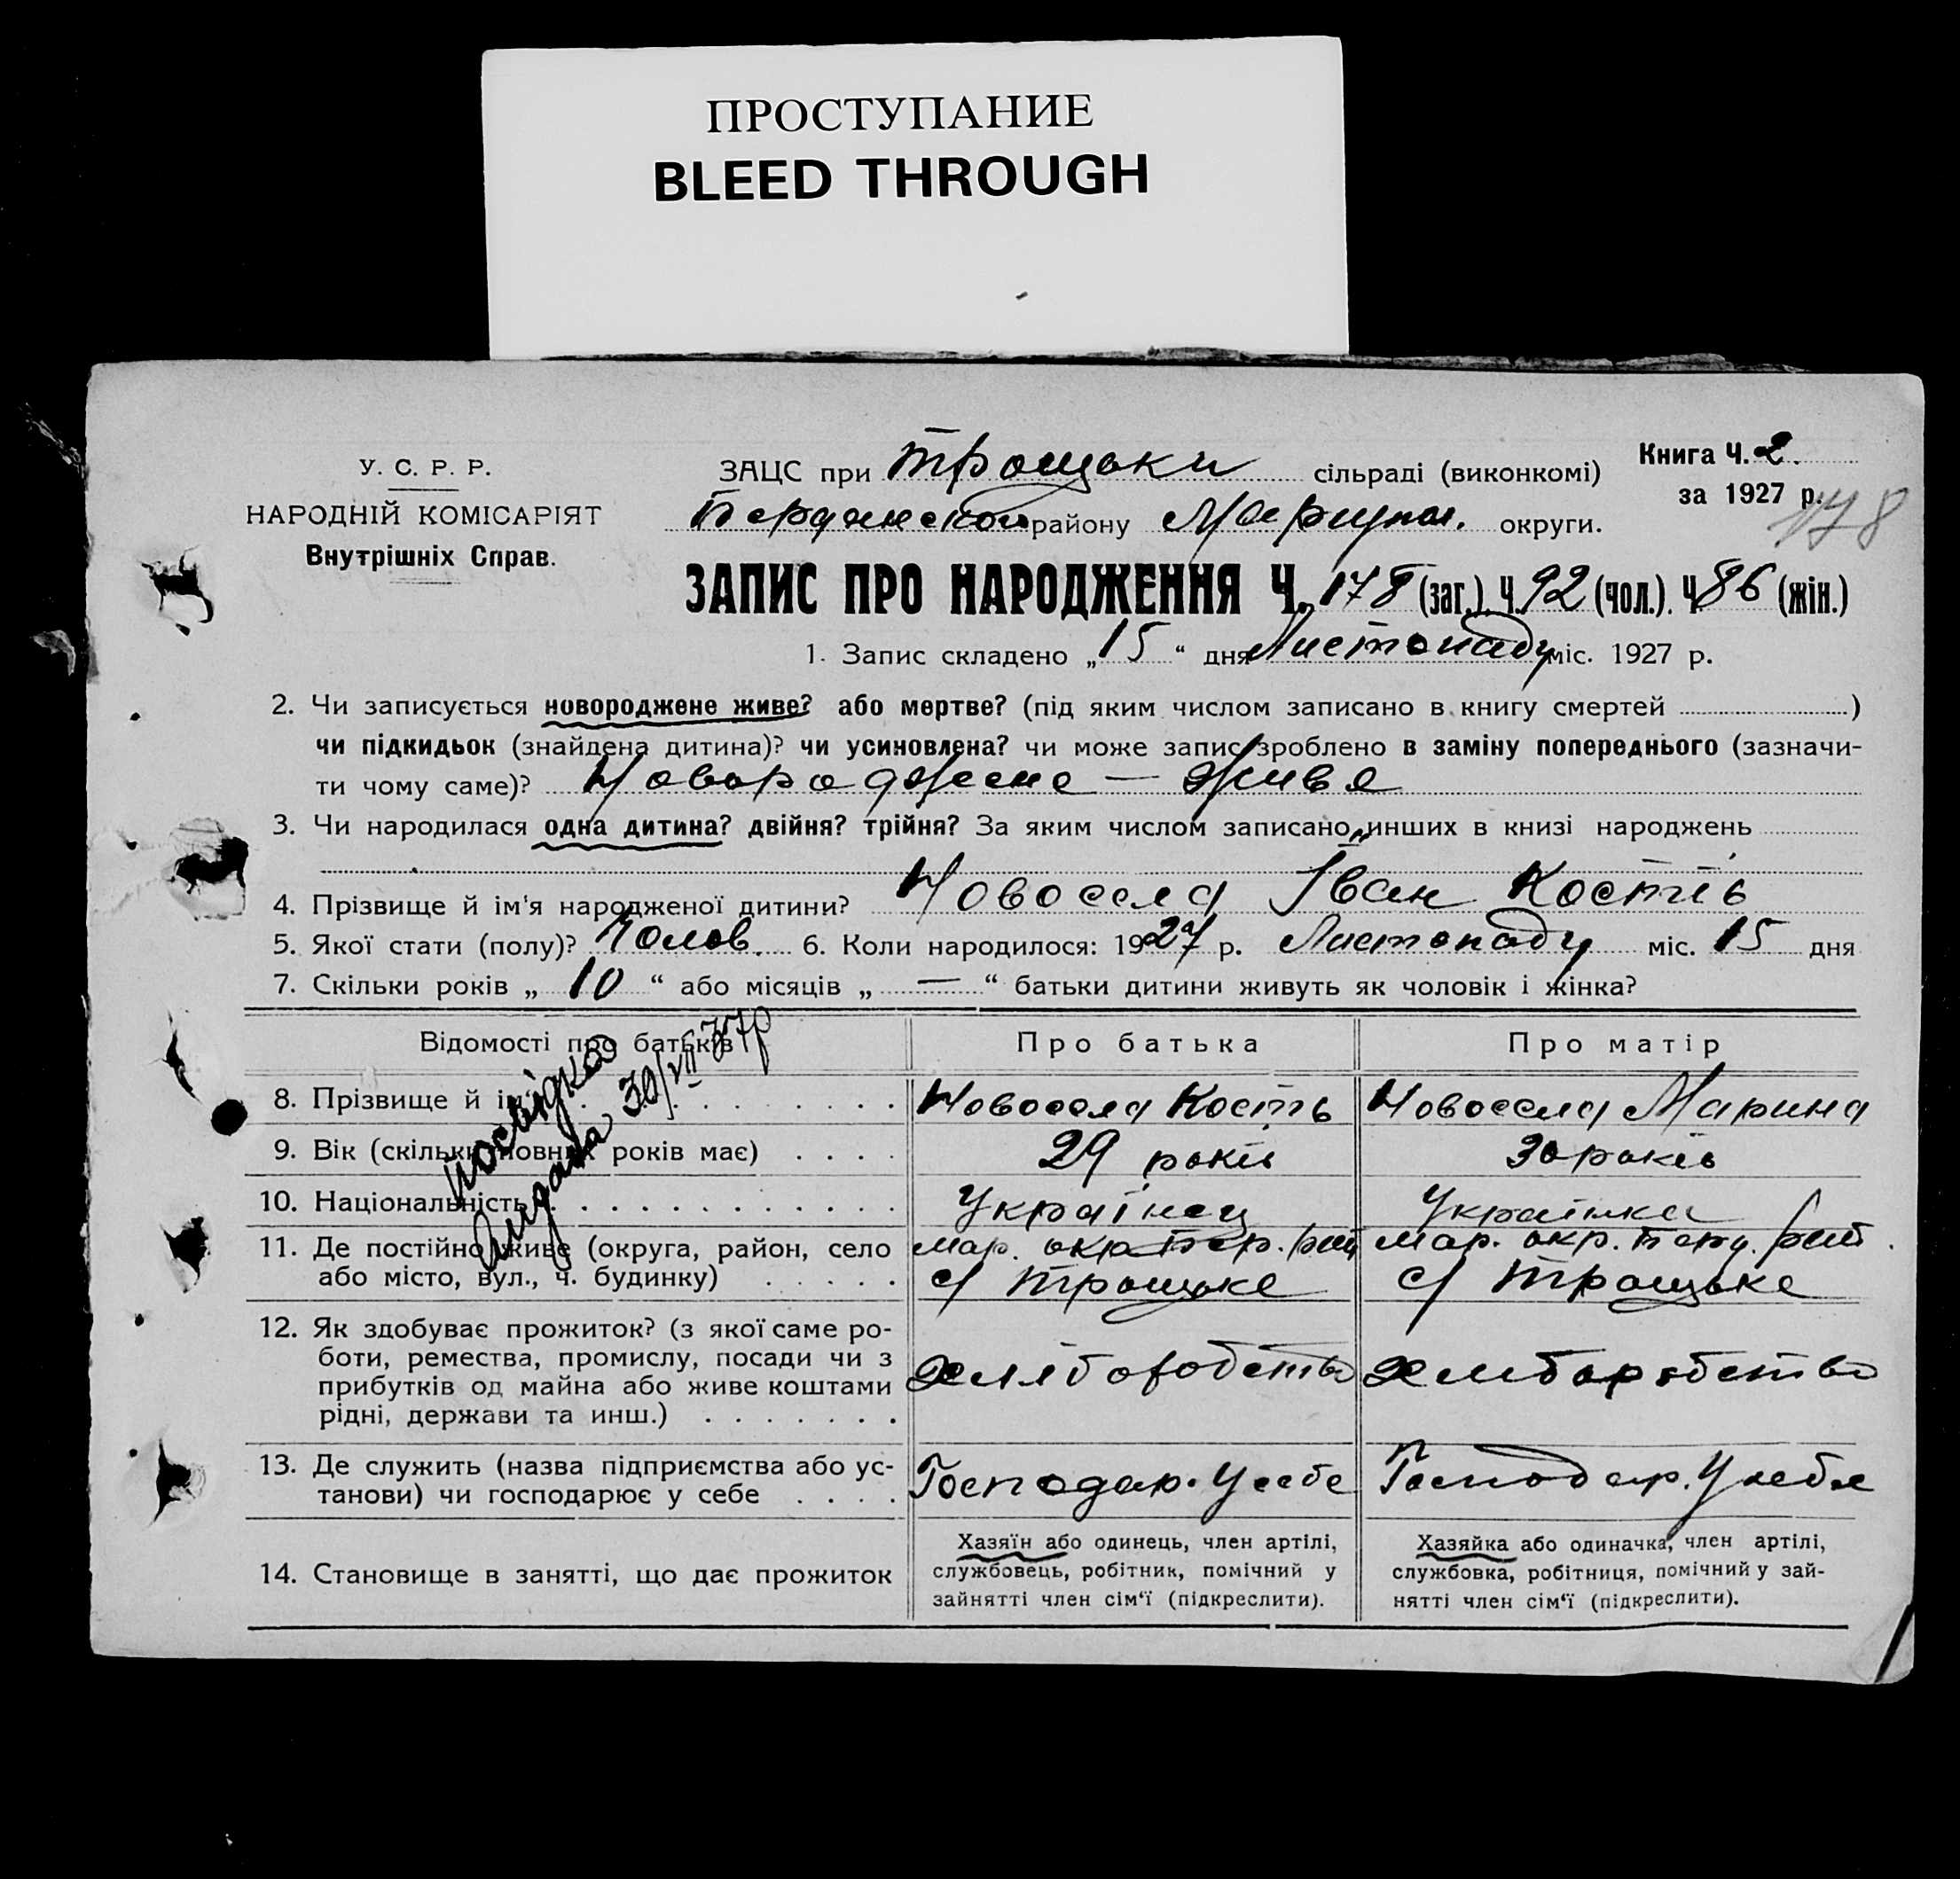 ПРОСТУПАНИЕ
BLEED THROUGH
У. С. Р. Р.
НАРОДНІЙ КОМІСАРІЯТ
Внутрішніх Справ.
ЗАЦС при Троцьки сільраді (виконкомі)
району Маріупол. округи.
Книга Ч. 2.
за 1927 р.
178
ЗАПИС ПРО НАРОДЖЕННЯ Ч. 178 (заг.). Ч. 92 (чол.). Ч 86 (жін.)
1. Запис складено „ 15 “ дня Листопаду міс. 1927 р.
2. Чи записується новороджене живе? або мертве? (під яким числом записано в книгу смертей )
чи підкидьок (знайдена дитина)? чи усиновлена? чи може запис зроблено в заміну попереднього (зазначи-
ти чому саме)? Новороджене — живе
3. Чи народилася одна дитина? двійня? трійня? За яким числом записано инших в книзі народжень
4. Прізвище й ім'я народженої дитини? Новосела Іван Костів
5. Якої стати (полу)? Чолов. 6. Коли народилося: 1927 р. Листопаду міс. 15 дня
7. Скільки років „ 10 “ або місяців „ — “ батьки дитини живуть як чоловік і жінка?
Відомості про батьків Про батька Про матір
8. Прізвище й ім'я Новосела Кость Новосела Марина
9. Вік (скільки повних років має) 29 років 30 років
10. Національність Українец Українка
11. Де постійно живе (округа, район, село Мар. окр. рай Мар. окр. рай.
або місто, вул., ч. будинку) с/ Троцьке с/ Троцьке
12. Як здобуває прожиток? (з якої саме ро-
боти, ремества, промислу, посади чи з
прибутків од майна або живе коштами
рідні, держави та инш.) Хліборобство Хлиборобство
13. Де служить (назва підприємства або ус-
танови) чи господарює у себе Господар. У себе Господар. У себе
14. Становище в занятті, що дає прожиток
Хазяїн або одинець, член артілі,
службовець, робітник, помічний у
зайнятті член сім‘ї (підкреслити).
Хазяйка або одиначка, член артілі,
службовка, робітниця, помічний у зай-
нятті член сім‘ї (підкреслити).
посвідка
30/VII 37р